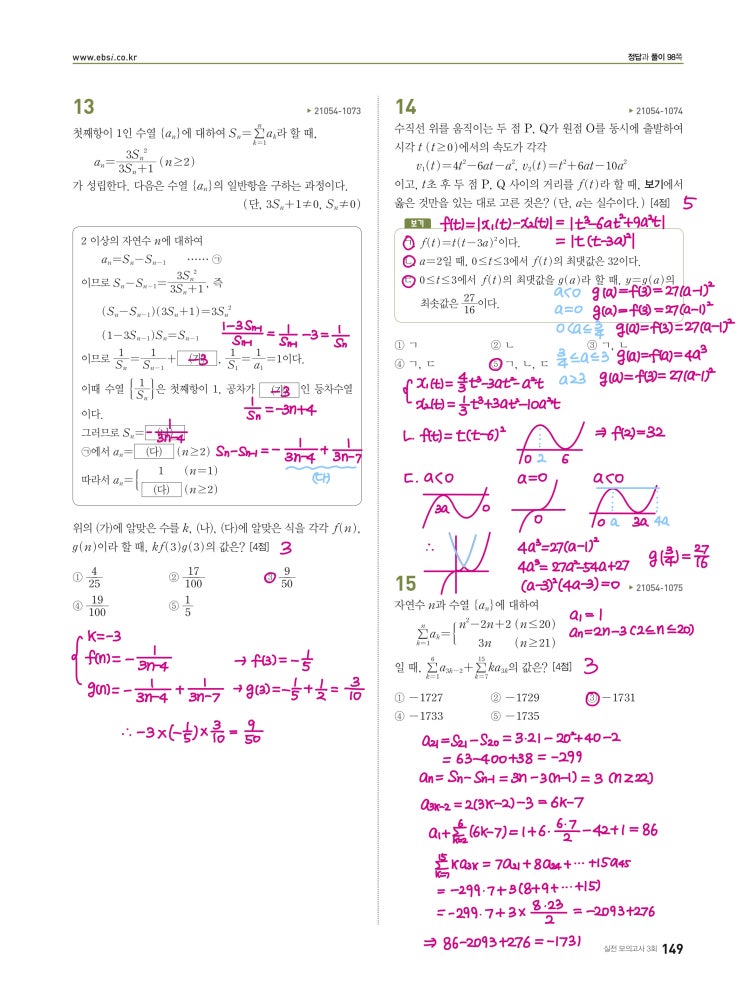 www.ebsi.co.kr
정답과 풀이 98쪽
13
▶ 21054-1073
첫째항이 1인 수열 {aₙ}에 대하여 Sₙ=∑ₖ₌₁ⁿ aₖ라 할 때,
aₙ=3Sₙ²/(3Sₙ+1) (n≥2)
가 성립한다. 다음은 수열 {aₙ}의 일반항을 구하는 과정이다.
(단, 3Sₙ+1≠0, Sₙ≠0)
2 이상의 자연수 n에 대하여
aₙ=Sₙ-Sₙ₋₁ …… ㉠
이므로 Sₙ-Sₙ₋₁=3Sₙ²/(3Sₙ+1), 즉
(Sₙ-Sₙ₋₁)(3Sₙ+1)=3Sₙ²
(1-3Sₙ₋₁)Sₙ=Sₙ₋₁
(1-3Sₙ₋₁)/Sₙ₋₁ = 1/Sₙ₋₁ -3 = 1/Sₙ
이므로 1/Sₙ=1/Sₙ₋₁+ -3 , 1/S₁=1/a₁=1이다.
이때 수열 {1/Sₙ}은 첫째항이 1, 공차가 -3 인 등차수열
이다.
1/Sₙ = -3n+4
그러므로 Sₙ= -1/(3n-4)
㉠에서 aₙ= (다) (n≥2)
Sₙ-Sₙ₋₁ = -1/(3n-4) + 1/(3n-7)
(다)
따라서 aₙ={ 1 (n=1)
(다) (n≥2)
위의 (가)에 알맞은 수를 k, (나), (다)에 알맞은 식을 각각 f(n),
g(n)이라 할 때, kf(3)g(3)의 값은? [4점] 3
① 4/25 ② 17/100 ③ 9/50
④ 19/100 ⑤ 1/5
k=-3
f(n)= -1/(3n-4) → f(3)= -1/5
g(n)= -1/(3n-4) + 1/(3n-7) → g(3)= -1/5 + 1/2 = 3/10
∴ -3×(-1/5)×3/10 = 9/50
14
▶ 21054-1074
수직선 위를 움직이는 두 점 P, Q가 원점 O를 동시에 출발하여
시각 t (t≥0)에서의 속도가 각각
v₁(t)=4t²-6at-a², v₂(t)=t²+6at-10a²
이고, t초 후 두 점 P, Q 사이의 거리를 f(t)라 할 때, 보기에서
옳은 것만을 있는 대로 고른 것은? (단, a는 실수이다.) [4점] 5
보기
f(t)=|x₁(t)-x₂(t)| = |t³-6at²+9a²t|
= |t(t-3a)²|
ㄱ. f(t)=t(t-3a)²이다.
ㄴ. a=2일 때, 0≤t≤3에서 f(t)의 최댓값은 32이다.
ㄷ. 0≤t≤3에서 f(t)의 최댓값을 g(a)라 할 때, y=g(a)의
최솟값은 27/16이다.
a<0 g(a)=f(3)=27(a-1)²
a=0 g(a)=f(3)=27(a-1)²
0<a≤3/4 g(a)=f(3)=27(a-1)²
3/4≤a≤3 g(a)=f(a)=4a³
a≥3 g(a)=f(3)=27(a-1)²
① ㄱ ② ㄴ ③ ㄱ, ㄴ
④ ㄱ, ㄷ ⑤ ㄱ, ㄴ, ㄷ
x₁(t)=4/3t³-3at²-a²t
x₂(t)=1/3t³+3at²-10a²t
ㄴ. f(t)=t(t-6)²
0 2 6
⇒ f(2)=32
ㄷ. a<0 a=0 a<0
3a 0
0
0 a 3a 4a
∴
4a³=27(a-1)²
4a³=27a²-54a+27
(a-3)²(4a-3)=0
g(3/4)=27/16
15
▶ 21054-1075
자연수 n과 수열 {aₙ}에 대하여
∑ₖ₌₁ⁿ aₖ={ n²-2n+2 (n≤20)
3n (n≥21)
a₁=1
aₙ=2n-3 (2≤n≤20)
일 때, ∑ₖ₌₁⁶ a₃ₖ₋₂+∑ₖ₌₇¹⁵ ka₃ₖ의 값은? [4점] 3
① -1727 ② -1729 ③ -1731
④ -1733 ⑤ -1735
a₂₁=S₂₁-S₂₀=3·21-20²+40-2
=63-400+38=-299
aₙ=Sₙ-Sₙ₋₁=3n-3(n-1)=3 (n≥22)
a₃ₖ₋₂=2(3k-2)-3=6k-7
a₁+∑ₖ₌₂⁶(6k-7)=1+6·6·7/2-42+1=86
∑ₖ₌₇¹⁵ ka₃ₖ=7a₂₁+8a₂₄+⋯+15a₄₅
=-299·7+3(8+9+⋯+15)
=-299·7+3×8·23/2=-2093+276
⇒ 86-2093+276=-1731
실전 모의고사 3회 149